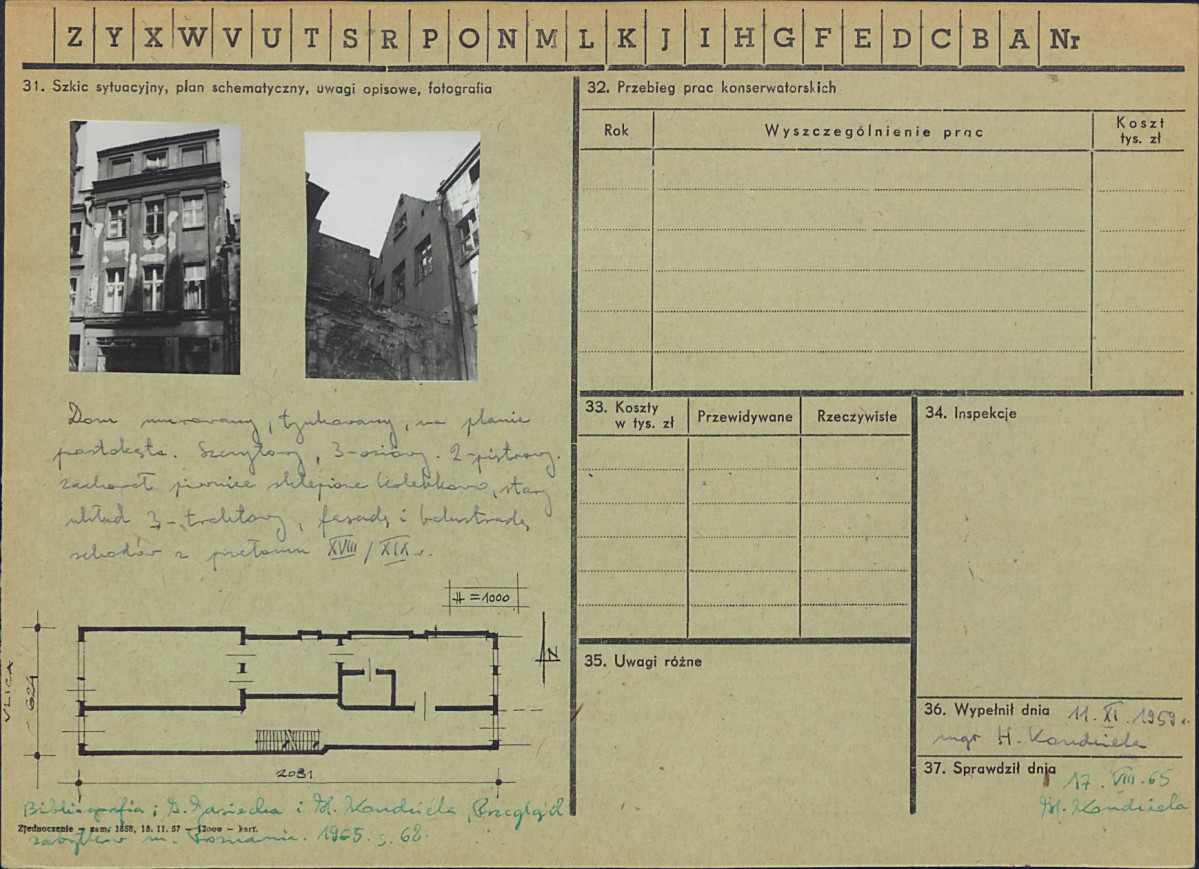 Z Y X W V U T S R P O N M L K J I H G F E D C B A Nr
31. Szkic sytuacyjny, plan schematyczny, uwagi opisowe, fotografia
Dom murowany, tynkowany, na planie
prostokąta. Szczytowy, 3-osiowy. 2-piętrowy.
zachował piwnice sklepione kolebkowo, stary
układ 3-traktowy, fasadę i balustradę
schodów z przełomu XVIII/XIX w.
H = 1000
N
ULICA
624
2081
Bibliografia; i H. Kondziela, Przegląd
zabytków m. Poznania. 1965. s. 68.
Zjednoczenie – zam. 1858, 18. 11. 57 – 12000 – kart.
32. Przebieg prac konserwatorskich
Rok
Wyszczególnienie prac
Koszt
tys. zł
33. Koszty
w tys. zł
Przewidywane
Rzeczywiste
34. Inspekcje
35. Uwagi różne
36. Wypełnił dnia 11. XI. 1959 r.
mgr H. Kondziela
37. Sprawdził dnia
17. VIII. 65
H. Kondziela